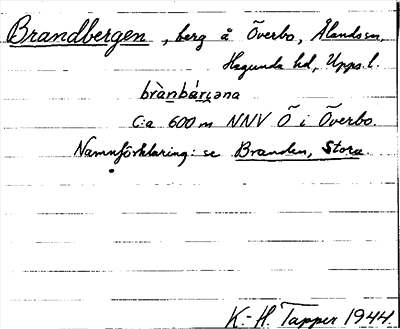 Brandbergen, berg å Överbo, Ålands sn,
Hagunda hd, Upps. l.
brànbár̨ɟəna
C:a 600 m NNV Ö i Överbo.
Namnförklaring: se Branden, Stora
K.-H. Tapper 1944